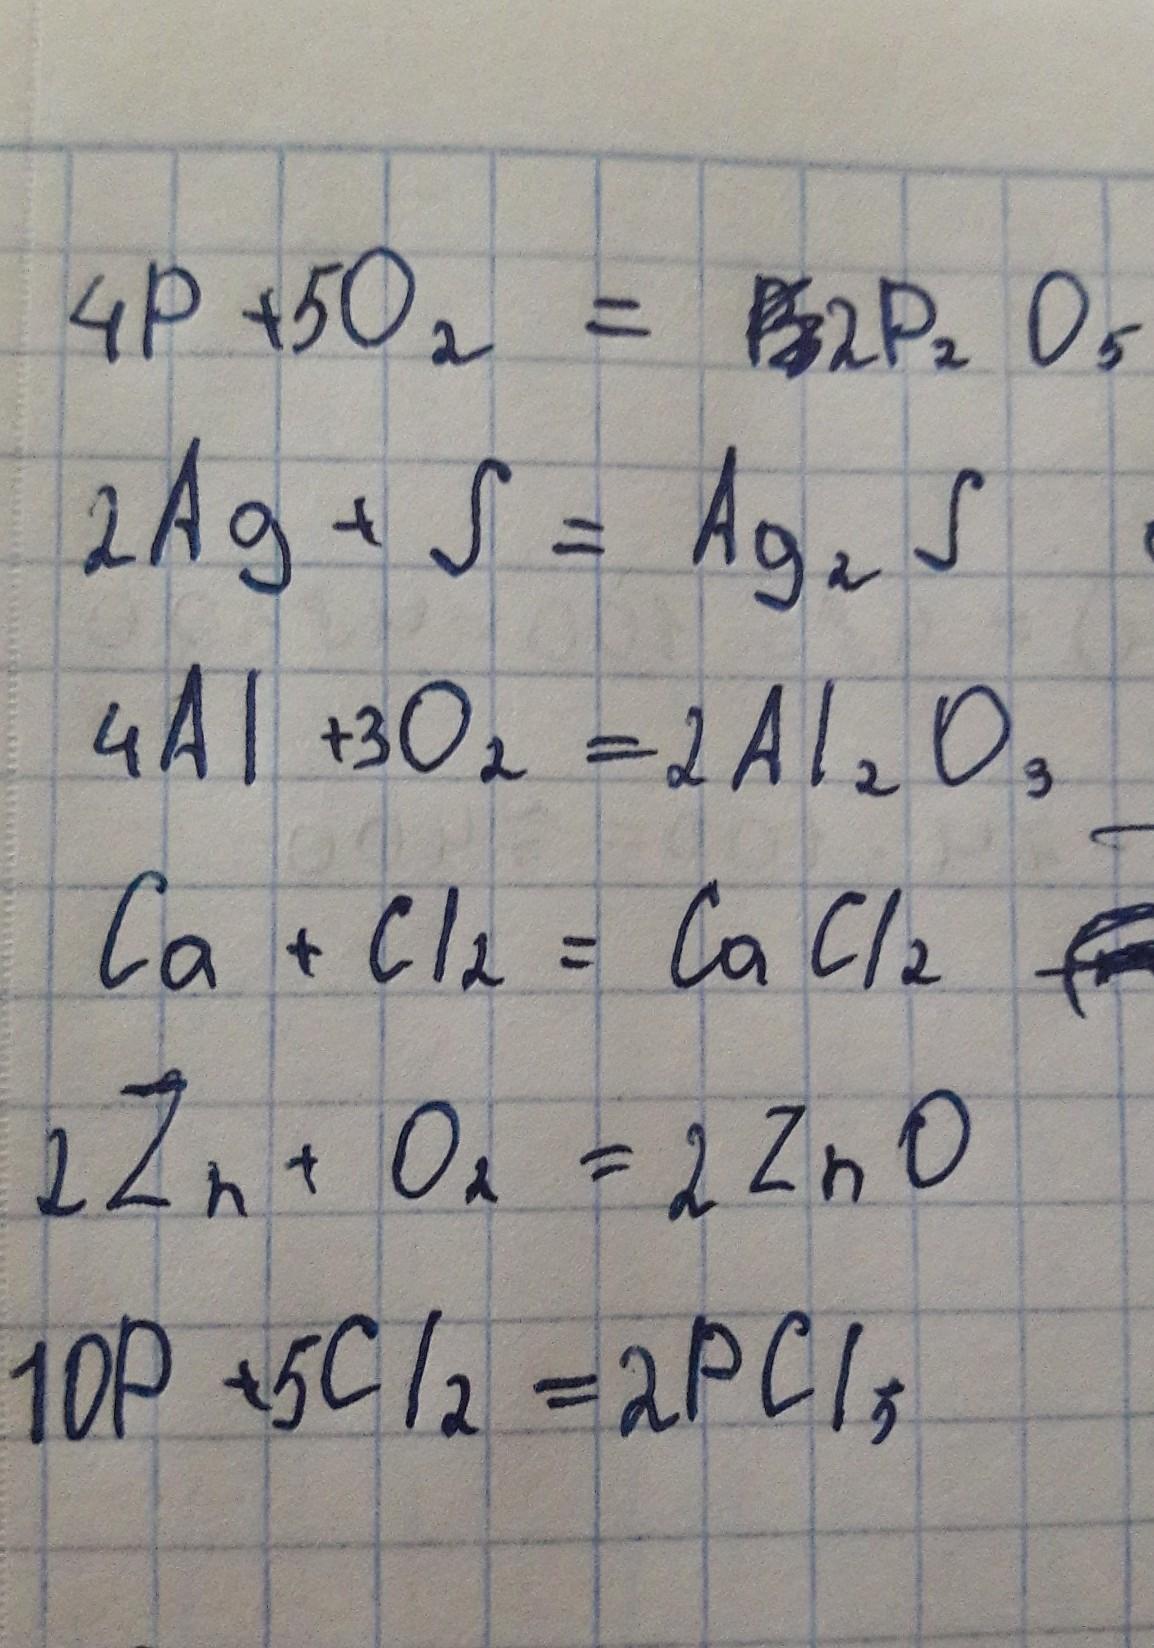 4P + 5O₂ = 2P₂O₅
2Ag + S = Ag₂S
4Al + 3O₂ = 2Al₂O₃
Ca + Cl₂ = CaCl₂
2Zn + O₂ = 2ZnO
10P + 5Cl₂ = 2PCl₅